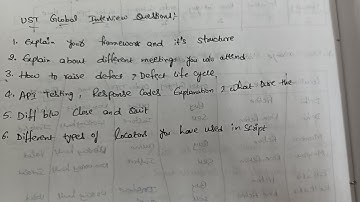 UST Global Interview Questions:-
1. Explain your framework and it's structure
2. Explain about different meetings you attend
3. How to raise defect? Defect Life Cycle,
4. API Testing, Response Codes Explanation & What are the
5. Diff b/w Close and Quit
6. Different types of locators you have used in script